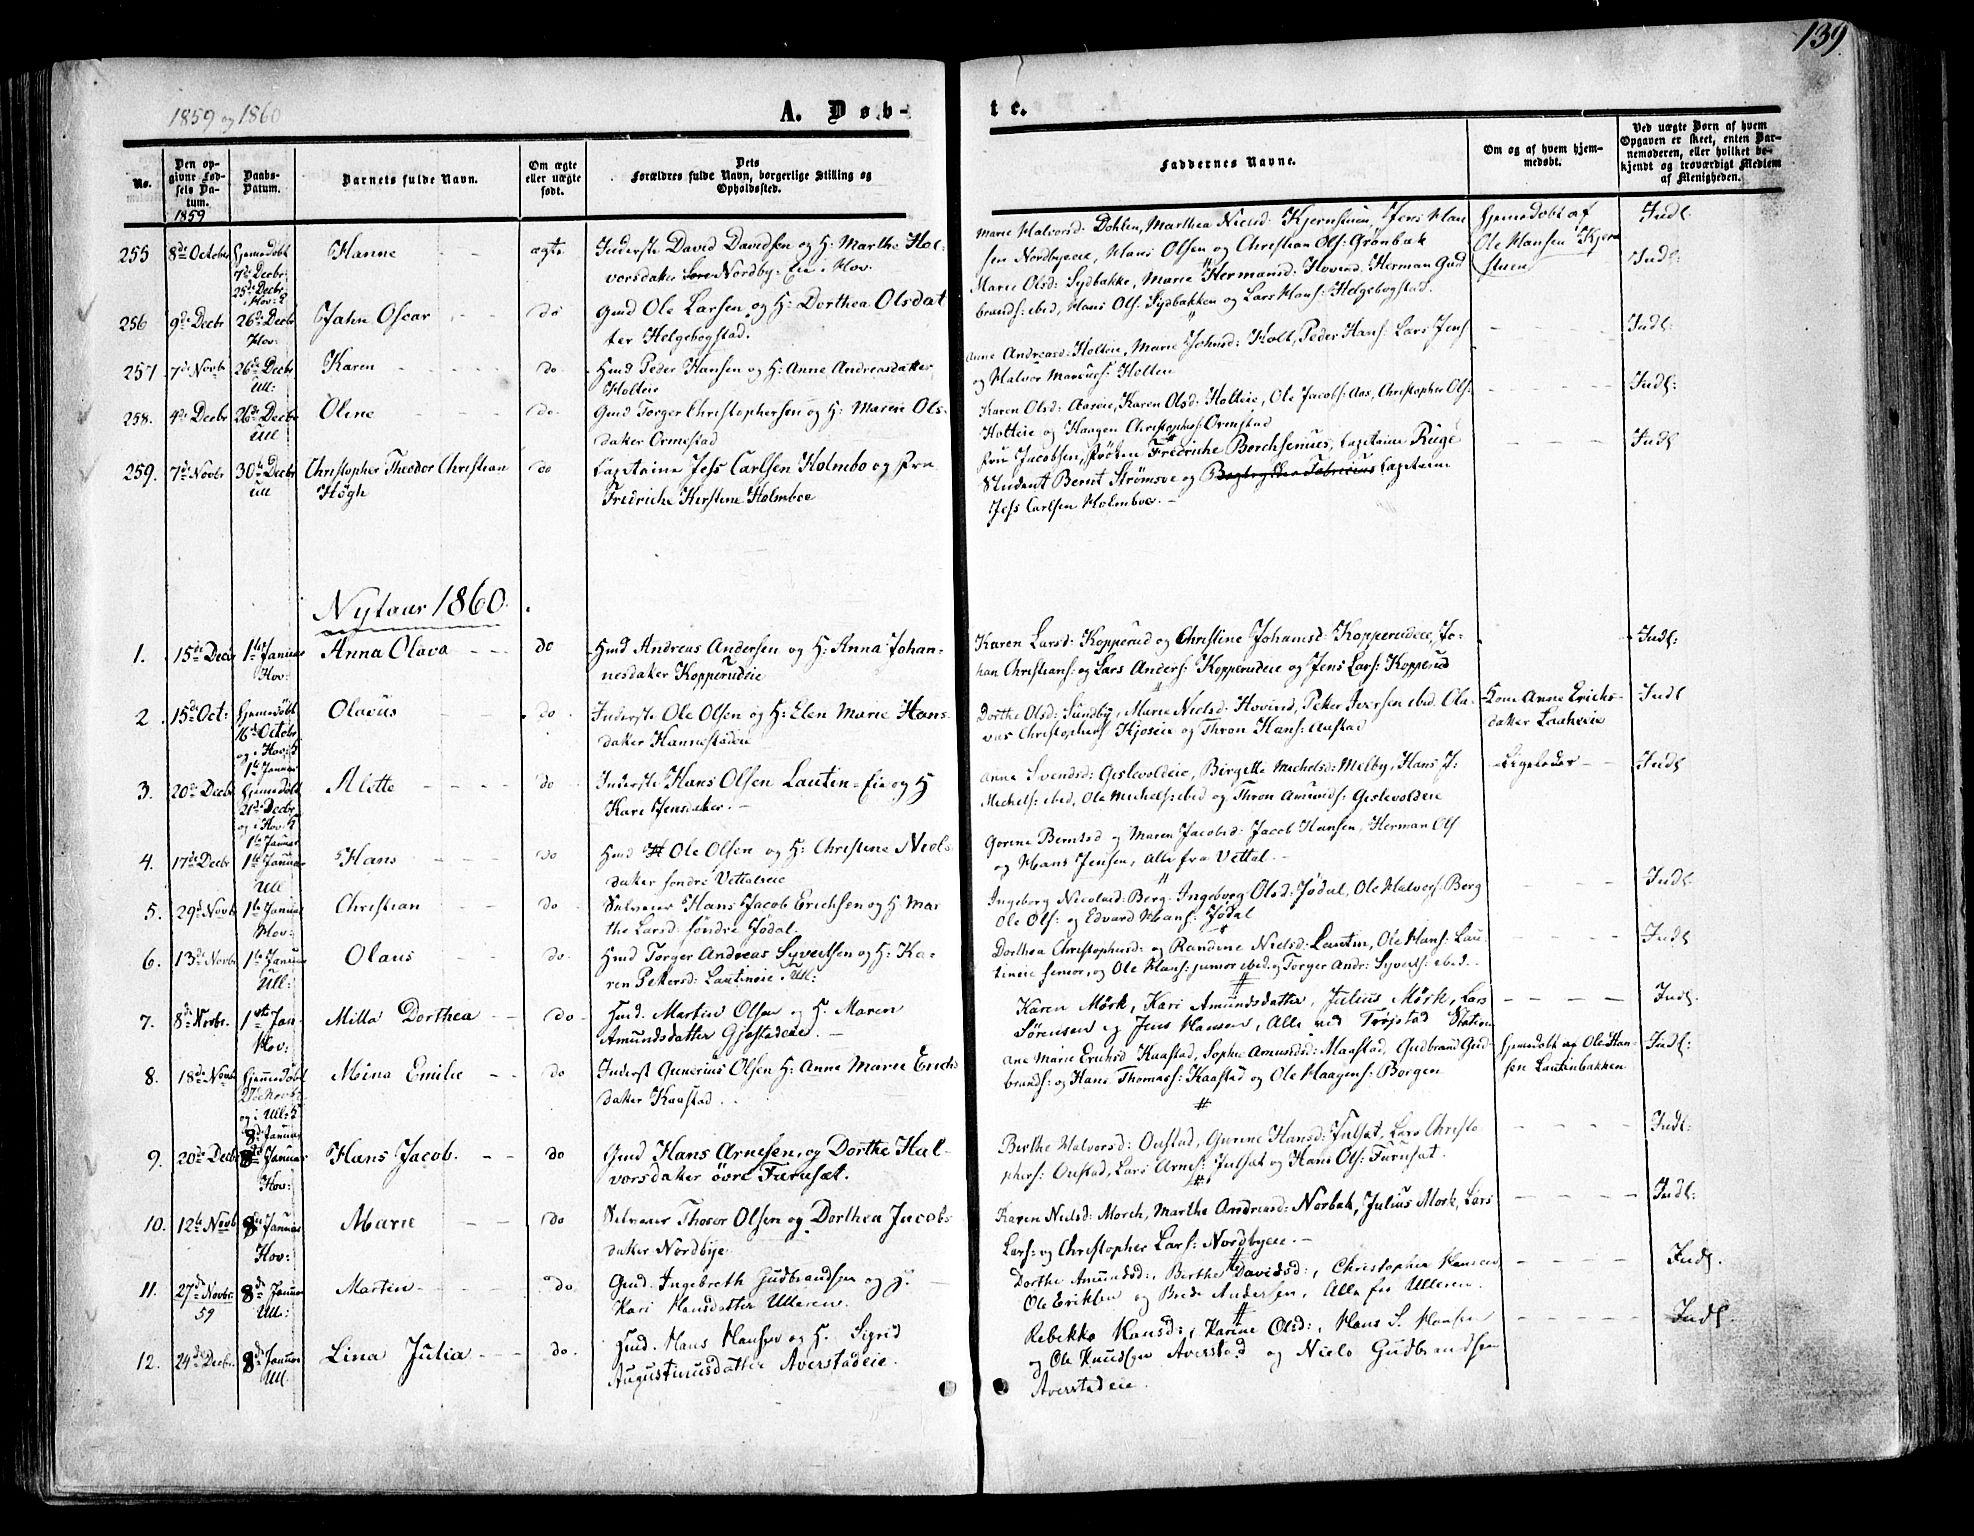 139
1859 og 1860
A. Døb-
te.
No.
Den op-
givne Fød-
sels Da-
tum.
Daabs-
Datum.
Barnets fulde Navn.
Om ægte
eller uægte
født.
Dets
Forældres fulde Navn, borgerlige Stilling og
Opholdssted.
Faddernes Navne.
Om og af hvem hjem-
medøbt.
Ved uægte Børn af hvem
Opgaven er skeet, enten Bar-
nemoderen, eller hvilket be-
kjendt og troværdigt Medlem
af Menigheden.
1859
255 8de October Hjemedöbt 7de Decbr: 25de Decbr: i Hov: Hanne ægte Inderste David Davidsen og H: Marthe Hal-
vorsdatter Nordby-Eie i Hov.
Marie Halvorsd: Dohlen, Marthea Nielsd: Kjernstuen, Jens Han
sen Nordbyeie, Hans Olsen og Christian Ols: Grönbæk
Hjemedöbt af
Ole Hansen Kjern
stuen
Indl:
256 9de Decbr 26de Decbr Hov: Jahn Oscar do Gmd Ole Larsen og H: Dorthea Olsdat
ter Helgebogstad.
Marie Olsd: Sydbakke, Marie Hermansd: Hovind, Herman Gud
brands: ibid, Hans Ols: Sydbakken og Lars Hans: Helgebogstad.
Indl:
257 7de Novbr 26de Decbr Ull: Karen do Hmd Peder Hansen og H: Anne Andreasdatter
Holteie
Anne Andreasd: Holteie, Marie Johnsd: Holt, Peder Hans: Lars Jens
og Halvor Marcus: Holteie
Indl:
258. 4de Decbr 26de Decbr Ull Oline do Gmd Torger Christophersen og H: Maren Ols-
datter Ormestad
Karen Olsd: Aaseie, Karen Olsd: Holteie, Ole Jacobs: Aas, Christopher Ols:
Holteie og Haagen Christophers: Ormstad
Indl:
259. 7de Novbr 30te Decbr Ull Christopher Theodor Christian
Högh do Capitaine Jess Carlsen Holmbo og Fru
Fredriche Kirstine Holmboe
Fru Jacobsen, Fröken Fredriche Borchsenius, Capitaine Ruge
Student Bernt Strömsoe og Capitain
Jess Carlsen Holmboe. -
Indl
Nytaar 1860.
1. 15de Decbr 1ste Januar Hov: Anna Olava do Hmd Andreas Andersen og H: Anna Johan-
nesdatter Kopperudeie
Karen Larsd: Kopperud og Christine Johansd: Kopperudeie, Jo-
han Christians: og Lars Anders: Kopperudeie og Jens Lars: Kopperud
Indl:
2 15de Oct: Hjemedöbt 16de Octobr og i Hov: 1ste Januar Olavus do Inderste Ole Olsen og H: Elen Marie Hans
datter Hannestadeie
Dorthe Olsd: Sundby, Marie Nielsd: Hovind, Peter Iversen ibid. Ola-
vus Christophers: Hjoseie og Thron Hans: Aastad
Som Anne Erichs-
datter Laakeie
Indl
3. 20de Decbr Hjemedöbt 21de Decbr og i Hov: 1ste Januar Alette do Inderste Hans Olsen Lautin-Eie og H
Kari Jensdatter. -
Anne Svendsd: Gislevoldeie, Birgitte Michelsd: Melby, Hans J:
Michels: ibid, Ole Michels: ibid og Thron Amunds: Gislevoldeie
Ligeledes
Indl
4. 17de Decbr 1ste Januar Ull Hans do Hmd Ole Olsen og H: Christine Niels
datter söndre Vettaleie
Gorine Berntsd og Maren Jacobsd: Jacob Hansen, Herman Ols
og Hans Jensen, Alle fra Vettal. -
Indl
5. 29de Novbr 1ste Januar Hov: Christian do Selveier Hans Jacob Erichsen og H: Mar
the Larsd: söndre Jödal.
Ingeborg Nicolaid: Berg, Ingeborg Olsd: Jödal, Ole Halvors: Berg
Ole Ols: og Edvard Hans: Jödal
Indl
6. 13de Novbr 1ste Januar Ull: Olaus do Hmd Torger Andreas Syvertsen og H: Ka-
ren Petersd: Lautineie i Ull:
Dorthea Christophersd: og Randine Nielsd: Lautin, Ole Hans: Lau-
tineie senior, og Ole Hans: junior ibid. og Torger Andr: Syverts: ibid.
Indl.
7. 8de Novbr. 1ste Jan- Hov: Milla Dorthea do Hmd. Martin Olsen og H. Maren
Amundsdatter Gjestadeie. -
Karen Mörk, Kari Amundsdatter, Julius Mörk, Lars
Sörensen og Jens Hansen, Alle ved Trögstad Station
Indl:
8. 18de Novbr Hjemmedöbt og i Ull: 8de Januar Mina Emilie do Inderst Gunerius Olsen H: Anne Marie Erichs
datter Kaastad
Ane Marie Erichsd Kaastad, Sophie Amundsd: Maastad, Gudbrand Gud-
brands: og Hans Thomass: Kaastad og Ole Haagens: Borgen
Hjemedöbt af Ole Han-
sen Lautinbakken
Indl:
9. 20de Decbr 8de Januar Hov: Hans Jacob. do Gmd Hans Arnesen og Dorthe Hal-
vorsdatter övre Furusæt.
Birthe Halvorsd: Oustad, Gurine Hansd: Julsæt, Lars Christo
phers: Oustad, Lars Arnes: Julsæt og Hans Ols: Furusæt.
Indl:
10. 12te Novbr 8de Januar Hov: Marie do Selveier Thoser Olsen og Dorthea Jacobs
datter Nordbye
Karen Nielsd: Morch, Marthe Andreasd: Norbak, Julius Mork, Lars
Lars: og Christopher Lars: Nordbyeie. -
Indl.
11. 27de Novbr. 59 8de Januar Ull: Martin do Gmd. Ingebreth Gudbrandsen og H.
Kari Hansdatter Ulleren.
Dorthe Amundsd:, Berthe Davidsd:, Christopher Hansen
Ole Eriksen og Brede Andersen, Alle fra Ulleren.
Indl.
12. 24de Decbr. 8de Januar Ull. Lina Julia do. Hmd. Hans Hansen og H. Sigrid
Augustinusdatter Averstadeie.
Rebekka Hansd:, Karine Olsd:, Hans S. Hansen
og Ole Knudsen Averstad og Niels Gudbrandsen
Averstadeie.